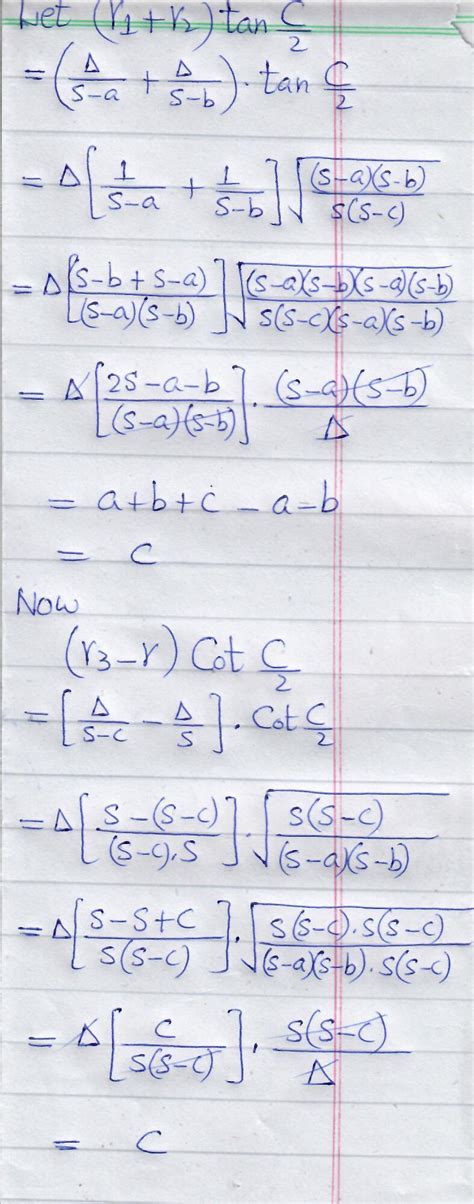 Let (r₁+r₂) tan C/2
= (Δ/(S-a) + Δ/(S-b)) · tan C/2
= Δ[1/(S-a) + 1/(S-b)] √((S-a)(S-b)/S(S-c))
= Δ[(S-b+S-a)/(S-a)(S-b)] √((S-a)(S-b)(S-a)(S-b)/S(S-c)(S-a)(S-b))
= Δ[(2S-a-b)/(S-a)(S-b)] · (S-a)(S-b)/Δ
= a+b+c-a-b
= c
Now
(r₃-r) Cot C/2
= [Δ/(S-c) - Δ/S] · Cot C/2
= Δ[(S-(S-c))/(S-c).S] · √(S(S-c)/(S-a)(S-b))
= Δ[(S-S+c)/S(S-c)] · √(S(S-c).S(S-c)/(S-a)(S-b).S(S-c))
= Δ[c/S(S-c)] · S(S-c)/Δ
= c